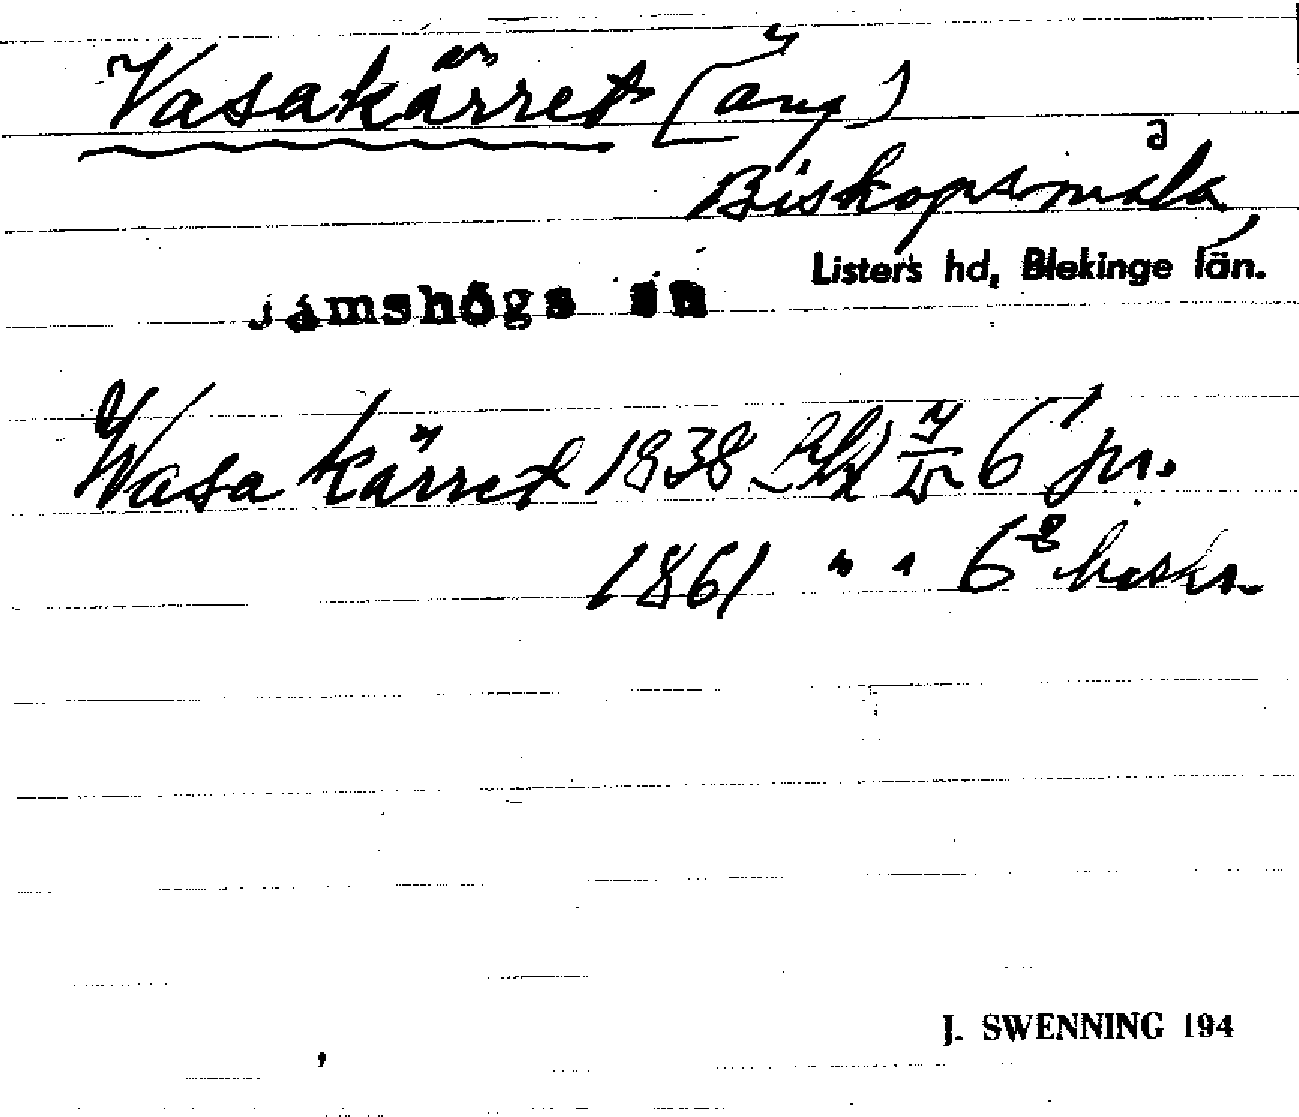 Vasakärret (äng)
Biskopsmåla,
Listers hd, Blekinge län.
Jämshögs sn
Wasa kärret 1838 6 pr.
1861 " " 6 beskr.
J. SWENNING 194